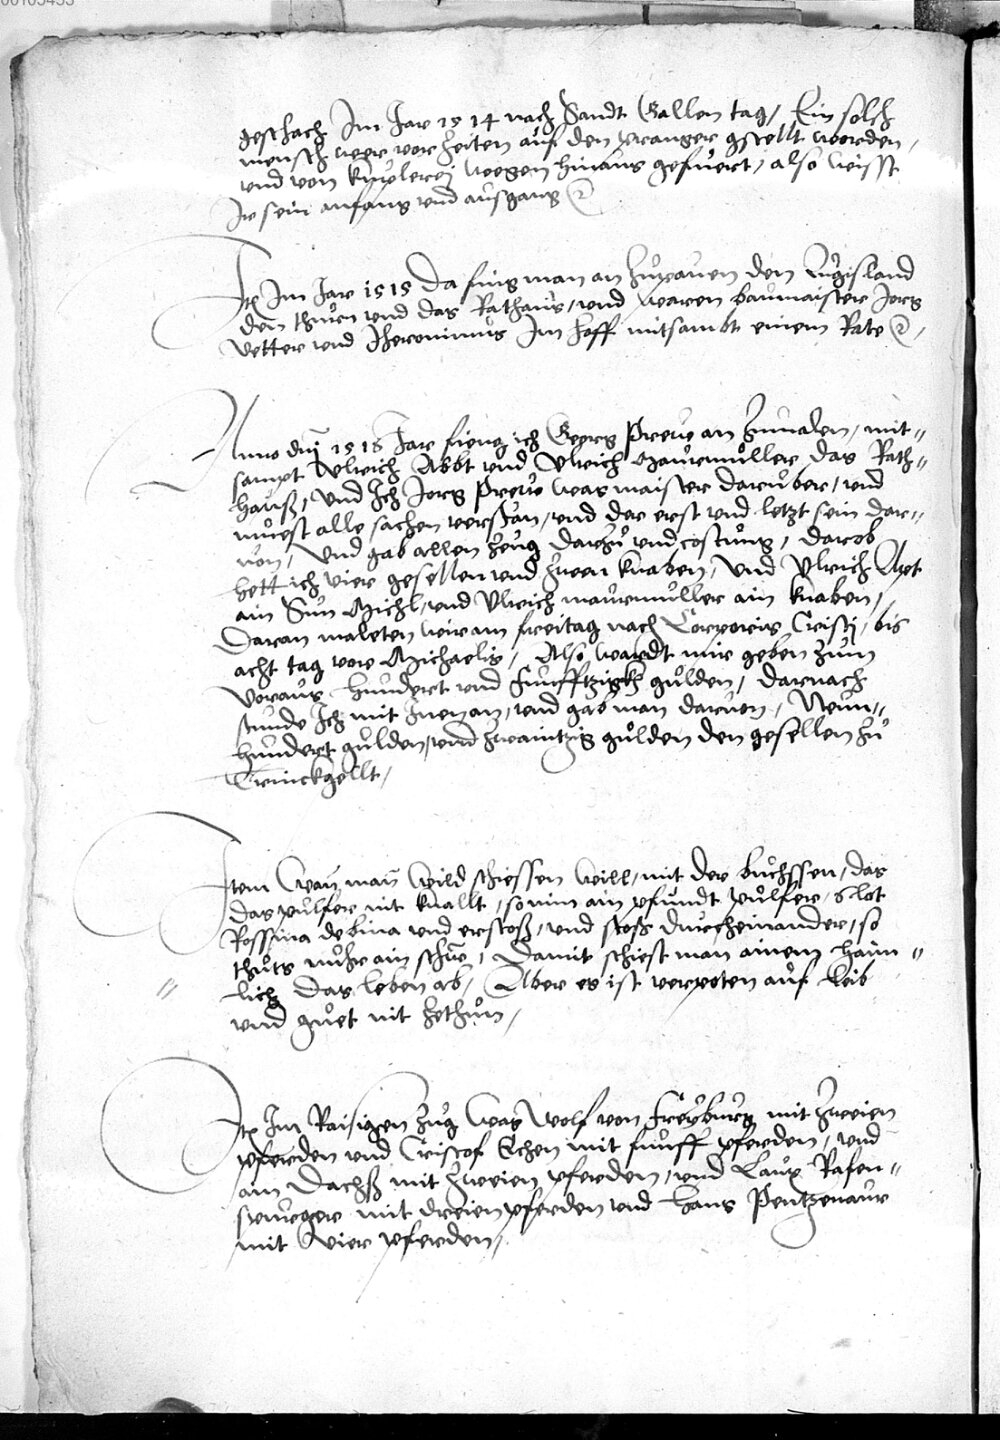 geschach Im Jar 1514 nach Sandt Gallen tag, Ein solch
mensch weer vor zeiten auf den pranger gstellt woorden,
und von kuplerej weegen hinaus gefuert, also weisst
Ir sein anfang und ausgang
Itz Im Jar 1515 Da fing man an zupauen den Lugisland
den thurn und das Rathaus, und waren baumaister Jorg
Vetter und Iheronimus Im hoff mitsambt einem Rate
Anno dnj 1516 Jar fieng ich Georg Preu an zumalen, mit-
sampt Ulreich Abbt und Ulrich Maurmuller das Rath-
hauß, Und Ich Jorg Preu was maister daruber, und
muest alle sachen versehn, und der erst und letzt sein dar-
von, Und gab allen zeug darzu und costung, darob
hett ich vier gesellen und zween knaben, Und Ulrich Apt
ain Sun Michl, und Ulreich maurmuller ain knaben,
Daran maleten wir am freitag nach Corporis Cristj, bis
acht tag vor Michaelis, Also wardt mir geben zum
Voraus hundert und funfftzigkh gulden, darnach
stunde Ich mit Inen an, und gab man darvon, Neun-
hundert gulden, und zwaintzig gulden den gesellen zu
Trinckhgellt,
Item Wan man Wild schiessen will, mit der buchssen, das
das pulfer nit knallt, so nim ain pfundt pulfer, 6 lot
Rossina de bina und erstoß, und stoß durcheinander, so
thuts nuhr ain schue, Damit schiest man ainem haim-
lich das leben ab, Aber es ist verpoten auf leib
und guet nit zethun,
Itz Im Raisigen zug was Wolf von Freyburg mit zweien
pferden und Cristof Echen mit funff pferden, und
ain Dachß mit zweien pferden, und Laux Rafen-
spurger mit dreien pferden und Hans Pentzenaur
mit vier pferden,